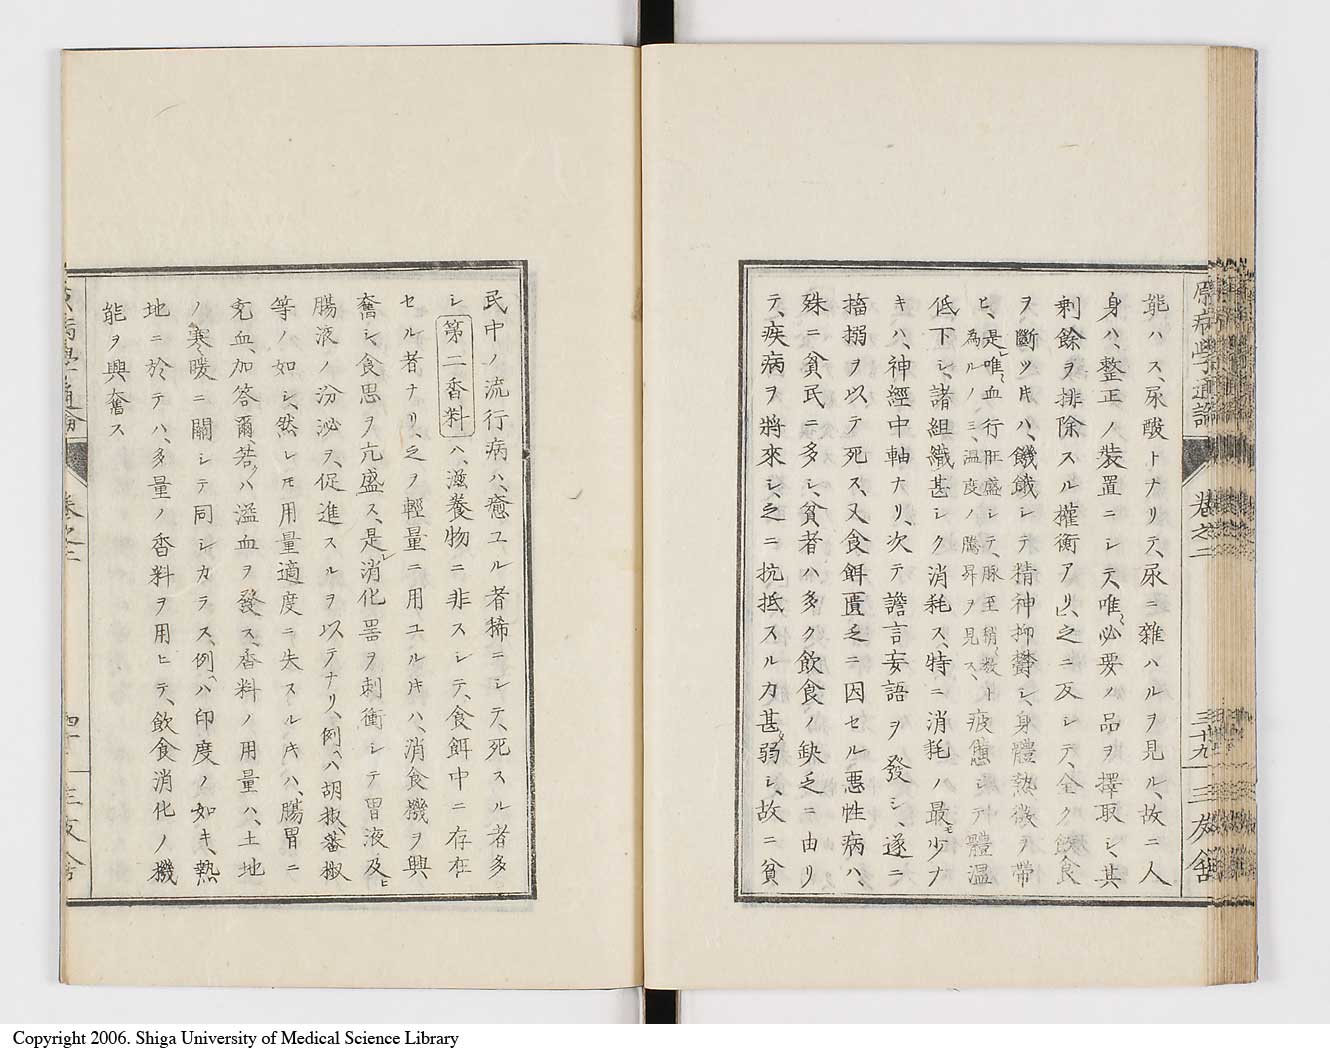 原病學通論
卷之二
三十九
三友舍
能ハス、尿酸トナリテ、尿ニ雜ハルヲ見ル、故ニ人
身ハ、整正ノ裝置ニシテ、唯必要ノ品ヲ擇取シ、其
剰餘ヲ排除スル權衡アリ、之ニ反シテ、全ク飲食
ヲ斷ツ𪜈ハ、饑餓シテ精神抑鬱シ、身體熱徴ヲ帶
ヒ、是レ唯血行旺盛シテ、脈至稍數ト為ルノミ、温度ノ騰昇ヲ見ス、疲憊シテ體温
低下シ、諸組織甚シク消耗ス、特ニ消耗ノ最モ少ヲ
キハ、神經中軸ナリ、次テ譫言妄語ヲ發シ、遂ニ
搐搦ヲ以テ死ス、又食餌匱乏ニ因セル悪性病ハ、
殊ニ貧民ニ多シ、貧者ハ多ク飲食ノ缺乏ニ由リ
テ、疾病ヲ將來シ、之ニ抗抵スルカ甚弱シ、故ニ貧
民中ノ流行病ハ、癒ユル者稀ニシテ、死スル者多
シ 第二香料ハ、滋養物ニ非スシテ、食餌中ニ存在
セル者ナリ、之ヲ輕量ニ用ユルキハ、消食機ヲ興
奮シ、食思ヲ亢盛ス、是レ消化器ヲ刺衝シテ胃液及ヒ
腸液ノ汾泌ヲ、促進スルヲ以テナリ、例ヘハ胡椒、蕃椒
等ノ如シ、然レモ用量適度ニ失スルキハ、腸胃ニ
充血、加答爾、若クハ溢血ヲ發ス、香料ノ用量ハ、土地
ノ寒暖ニ關シテ同シカラス、例ヘハ印度ノ如キ、熱
地ニ於テハ、多量ノ香料ヲ用ヒテ、飲食消化ノ機
能ヲ興奮ス
病學通論
卷之二
四十
三友舍
Copyright 2006. Shiga University of Medical Science Library